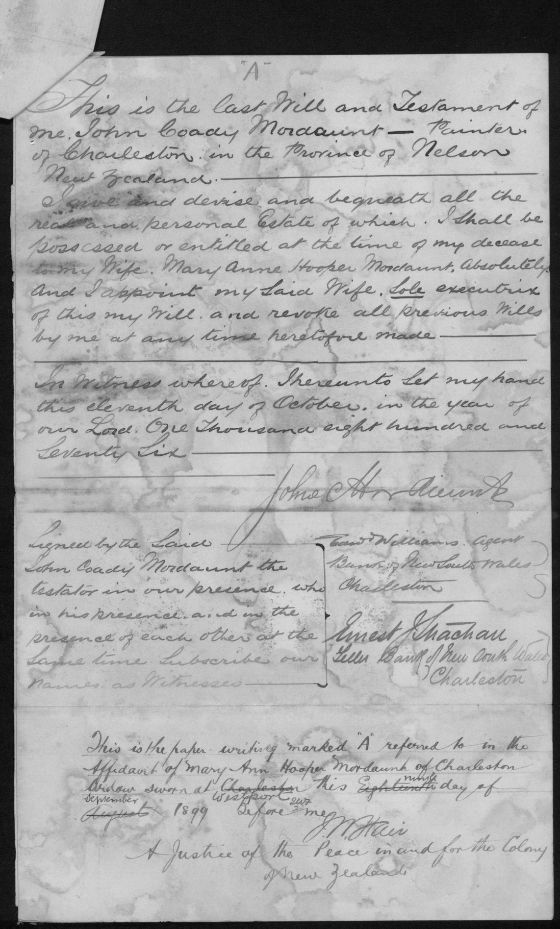 "A"
This is the last Will and Testament of
me, John Coady Mordaunt — Painter
of Charleston in the Province of Nelson
New Zealand.
I give and devise and bequeath all the
real and personal Estate of which I shall be
possessed or entitled at the time of my decease
to my Wife. Mary Anne Hooper Mordaunt, Absolutely
And I appoint my Said Wife, Sole executrix
of this my Will and revoke all previous Wills
by me at any time heretofore made
In Witness whereof, I hereunto Set my hand
this eleventh day of October, in the year of
our Lord. One Thousand eight hundred and
Seventy Six
John C Mordaunt
Signed by the Said
John Coady Mordaunt the
testator in our presence, who
in his presence, and in the
presence of each other at the
Same time Subscribe our
names as Witnesses
Williams. Agent
Bank of New South Wales
Charleston
Ernest J Strachan
Teller Bank of New South Wales
Charleston
This is the paper writing marked "A" referred to in the
Affidavit of Mary Ann Hooper Mordaunt of Charleston
Widow sworn at Charleston Westport this Eighteenth ninth day of
August September 1899 before me
A Justice of the Peace in and for the Colony
of New Zealand